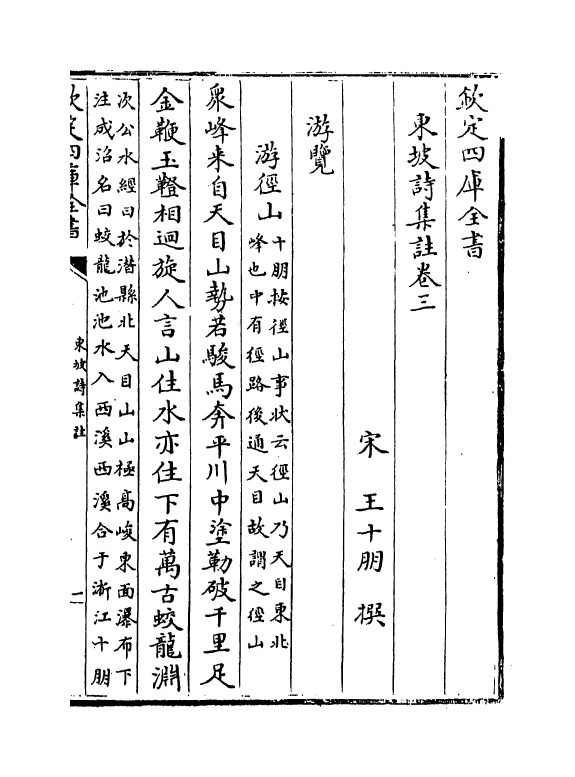 欽定四庫全書
東坡詩集註卷三
宋 王十朋 撰
游覽
游徑山十朋按徑山事狀云徑山乃天目東北
峰也中有徑路後通天目故謂之徑山
衆峰来自天目山勢若駿馬奔平川中塗勒破千里足
金鞭玉鐙相迴旋人言山住水亦住下有萬古蛟龍淵
次公水經曰於潜縣北天目山山極高峻東面瀑布下
注成沼名曰蛟龍池池水入西溪西溪合于浙江十朋
欽定四庫全書
東坡詩集註
一